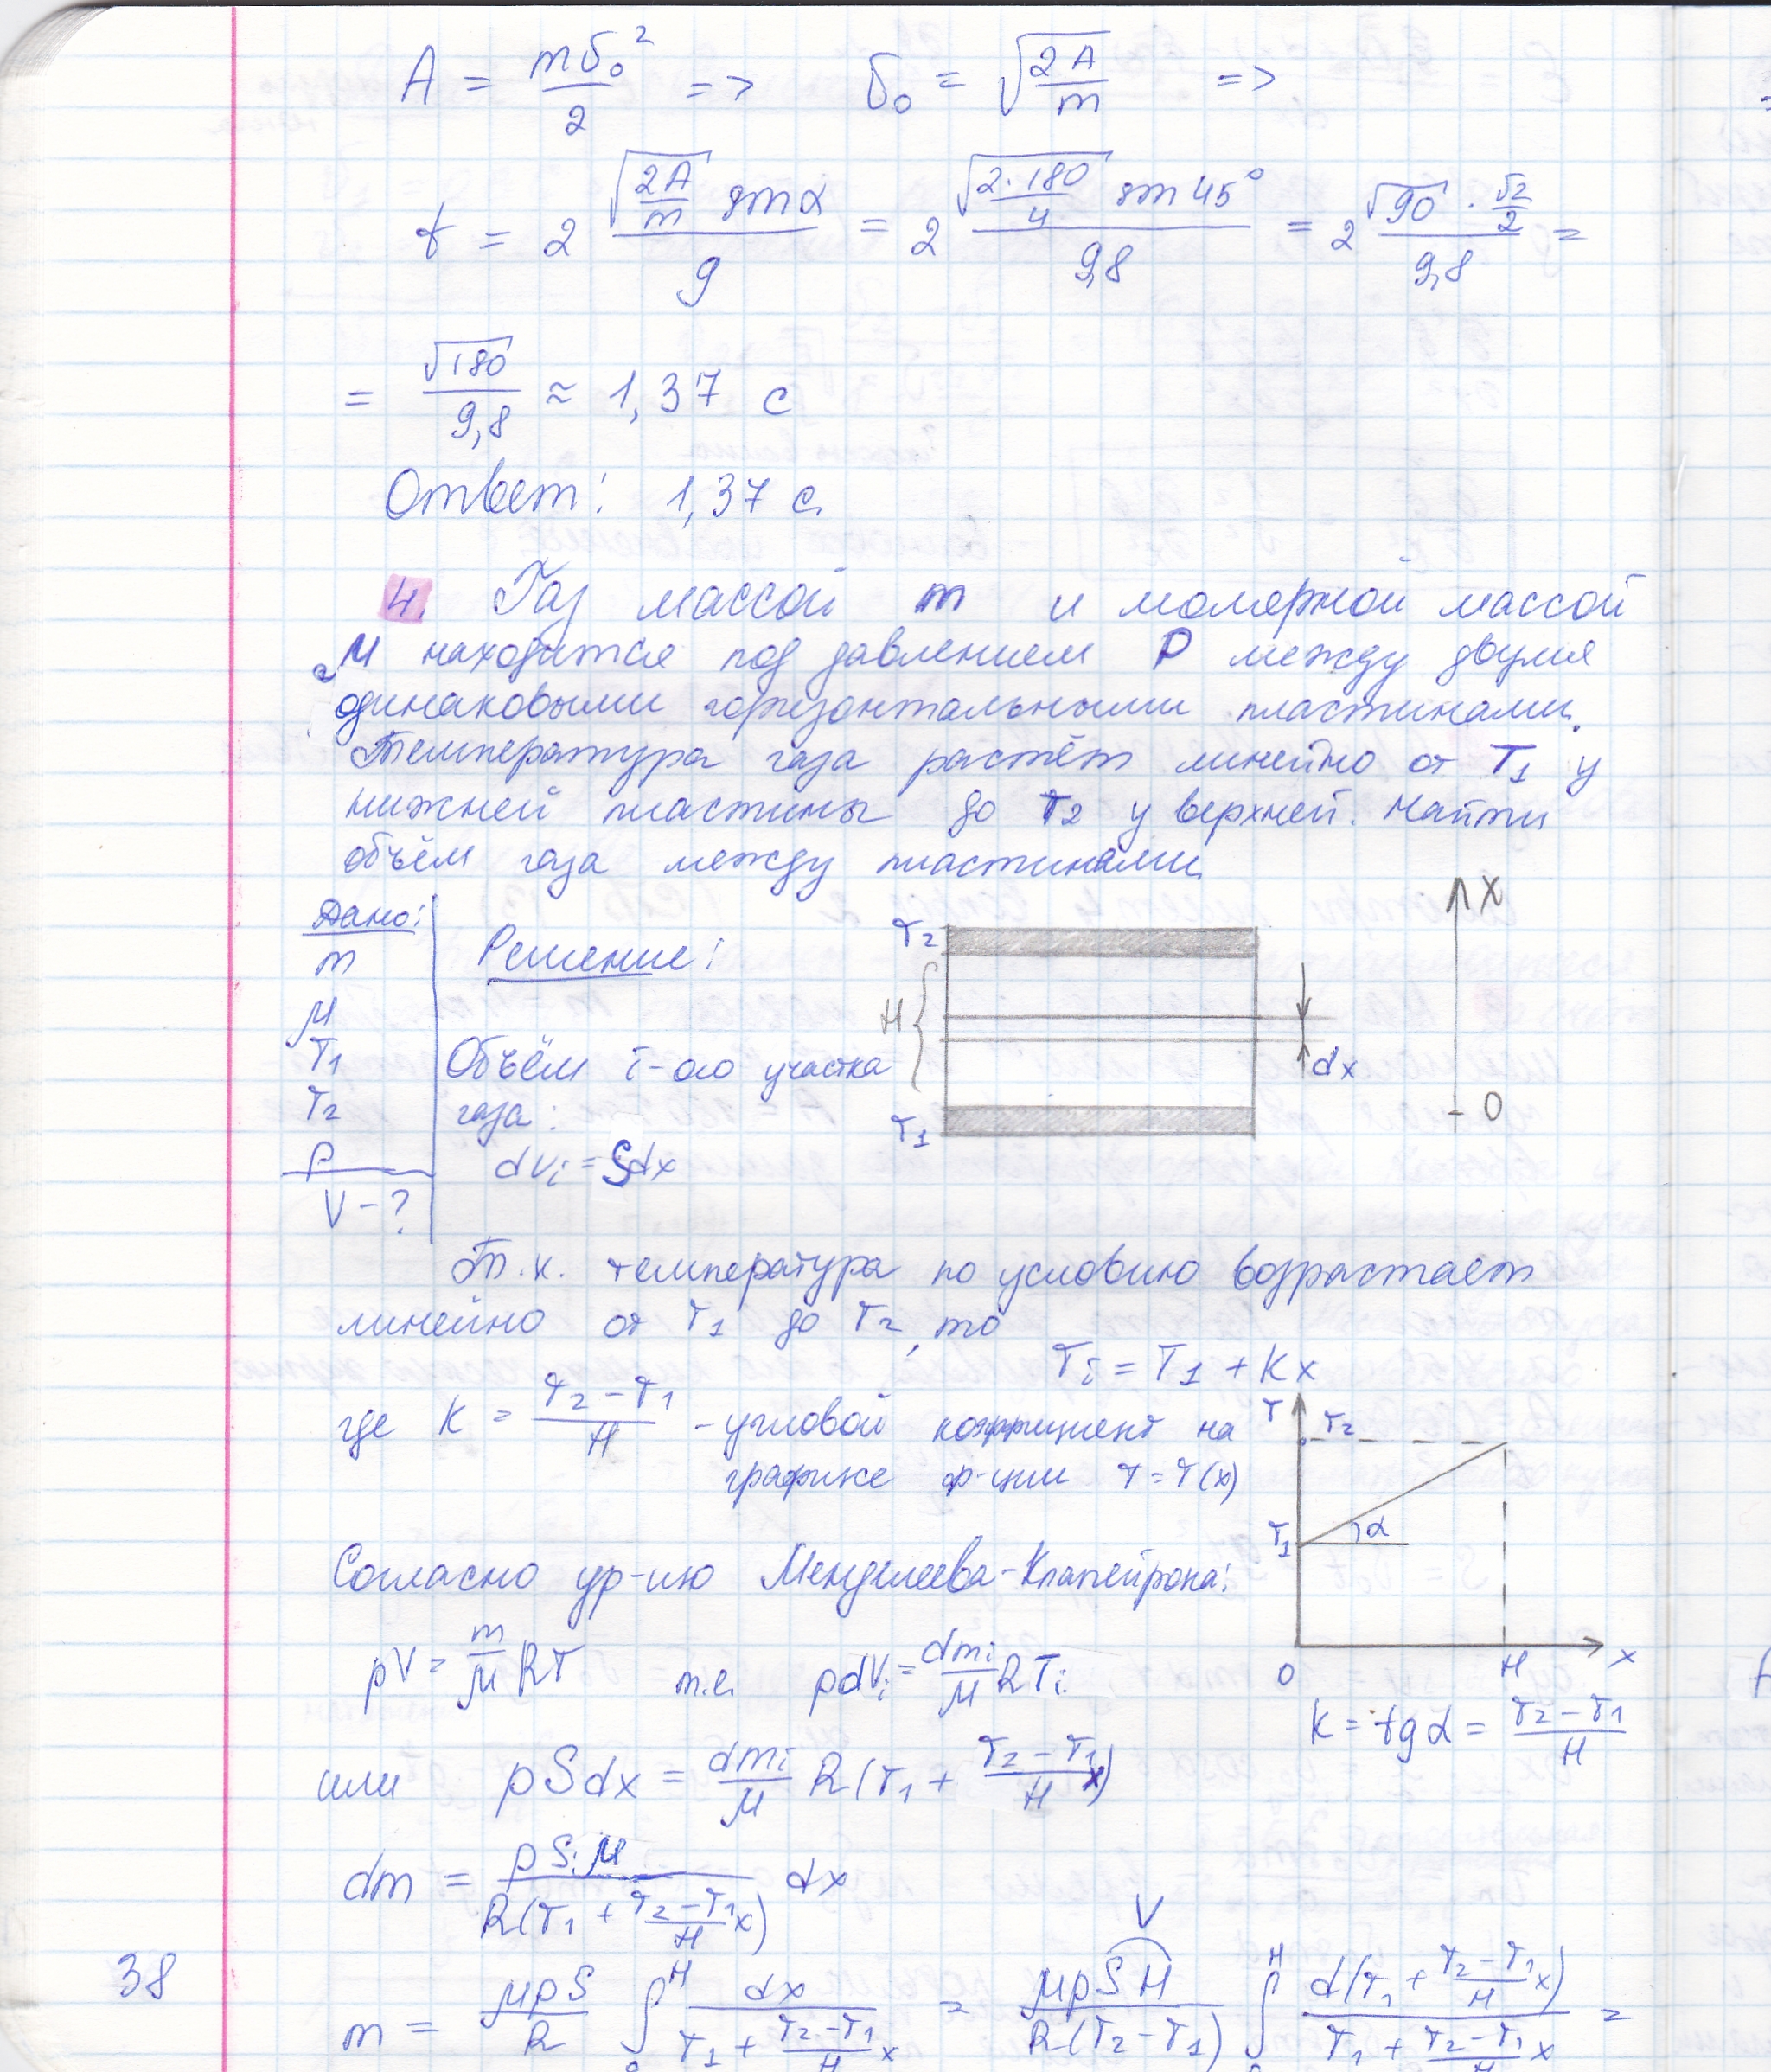 A = mυ₀²/2 => υ₀ = √(2A/m) =>
t = 2 √(2A/m) sin α / g = 2 √(2·180/4) sin 45° / 9,8 = 2 √90 · √2/2 / 9,8 =
= √180/9,8 ≈ 1,37 с
Ответ: 1,37 с.
4. Газ массой m и молярной массой
μ находится под давлением P между двумя
одинаковыми горизонтальными пластинами.
Температура газа растёт линейно от T₁ у
нижней пластины до T₂ у верхней. Найти
объём газа между пластинами.
Дано:
m
μ
T₁
T₂
P
V - ?
Решение:
T₂
H
T₁
dx
X
0
Объём i-ого участка
газа:
dVᵢ = Sdx
Т.к. температура по условию возрастает
линейно от T₁ до T₂, то
Tᵢ = T₁ + kx
где k = (T₂ - T₁)/H - угловой коэффициент на
графике ф-ции T = T(x)
T
T₂
T₁
α
0
H
x
k = tg α = (T₂ - T₁)/H
Согласно ур-ию Менделеева-Клапейрона:
pV = m/μ RT т.е. pdVᵢ = dmᵢ/μ RTᵢ
или pSdx = dmᵢ/μ R(T₁ + (T₂ - T₁)/H x)
dm = pSμ / R(T₁ + (T₂ - T₁)/H x) dx
V
m = μpS/R ∫₀ᴴ dx / (T₁ + (T₂ - T₁)/H x) = μpSH / R(T₂ - T₁) ∫₀ᴴ d(T₁ + (T₂ - T₁)/H x) / (T₁ + (T₂ - T₁)/H x) =
38